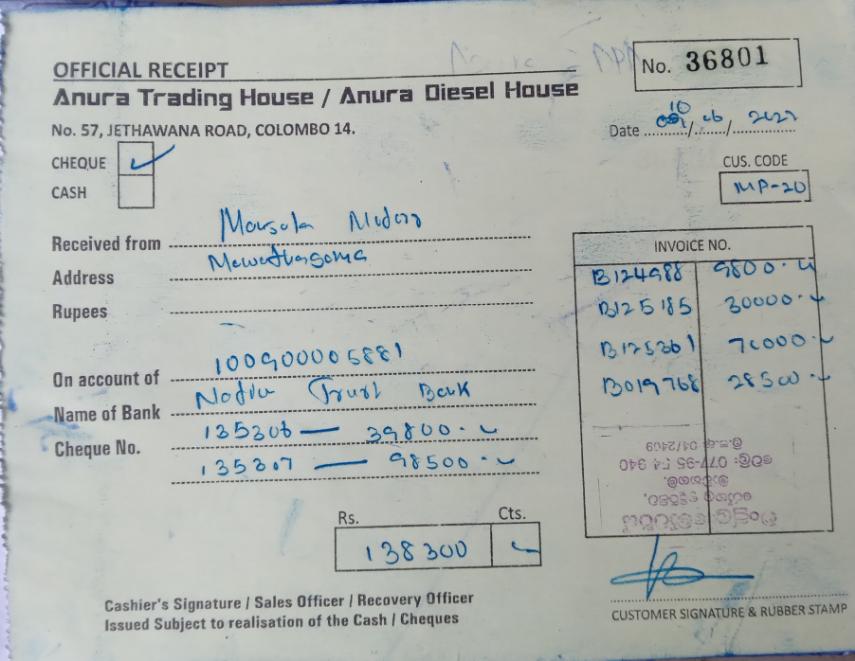 OFFICIAL RECEIPT
No. 36801
Anura Trading House / Anura Diesel House
No. 57, JETHAWANA ROAD, COLOMBO 14.
Date 10/06/
CHEQUE ✓
CUS. CODE
CASH
MP-20
Received from
INVOICE NO.
Address
B124988 9800
Rupees
B125185 30000
B125361 70000
On account of 100900005881
B019768 28500
Name of Bank Trust Bank
Cheque No. 135306 — 39800
135307 — 98500
Rs. Cts.
138300
Cashier's Signature / Sales Officer / Recovery Officer
Issued Subject to realisation of the Cash / Cheques
CUSTOMER SIGNATURE & RUBBER STAMP